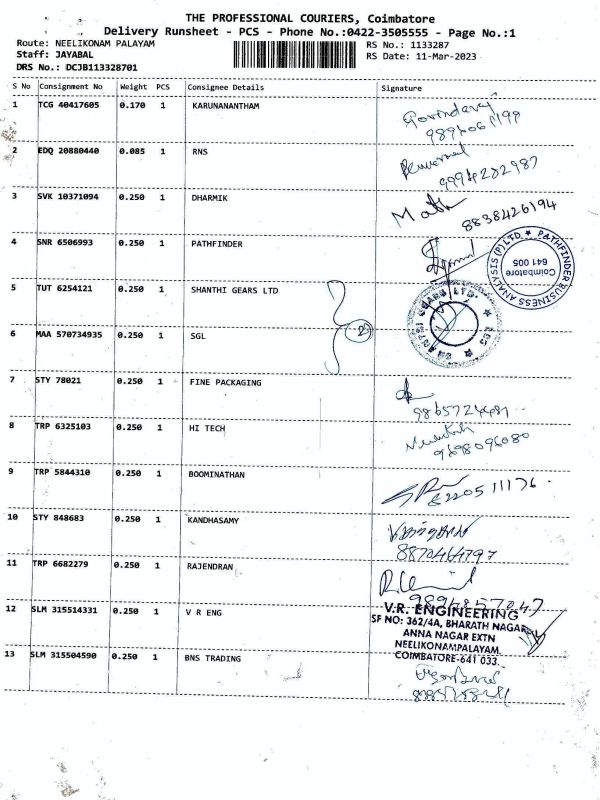 THE PROFESSIONAL COURIERS, Coimbatore
Delivery Runsheet - PCS - Phone No.:0422-3505555 - Page No.:1
Route: NEELIKONAM PALAYAM RS No.: 1133287
Staff: JAYABAL RS Date: 11-Mar-2023
DRS No.: DCJB113328701
S No Consignment No Weight PCS Consignee Details Signature
1 TCG 40417605 0.170 1 KARUNANANTHAM
Govindaraj
2 EDQ 20880440 0.085 1 RNS
9994282987
3 SVK 10371094 0.250 1 DHARMIK
8838426194
4 SNR 6506993 0.250 1 PATHFINDER
PATHFINDER BUSINESS ANALYSIS (P) LTD.
Coimbatore
641 005
5 TUT 6254121 0.250 1 SHANTHI GEARS LTD
6 MAA 570734935 0.250 1 SGL
7 STY 78021 0.250 1 FINE PACKAGING
8 TRP 6325103 0.250 1 HI TECH
9698096080
9 TRP 5844310 0.250 1 BOOMINATHAN
10 STY 848683 0.250 1 KANDHASAMY
8870464797
11 TRP 6682279 0.250 1 RAJENDRAN
9894857047
12 SLM 315514331 0.250 1 V R ENG
V.R. ENGINEERING
SF NO: 362/4A, BHARATH NAGAR
ANNA NAGAR EXTN
NEELIKONAMPALAYAM.
COIMBATORE-641 033.
13 SLM 315504590 0.250 1 BNS TRADING